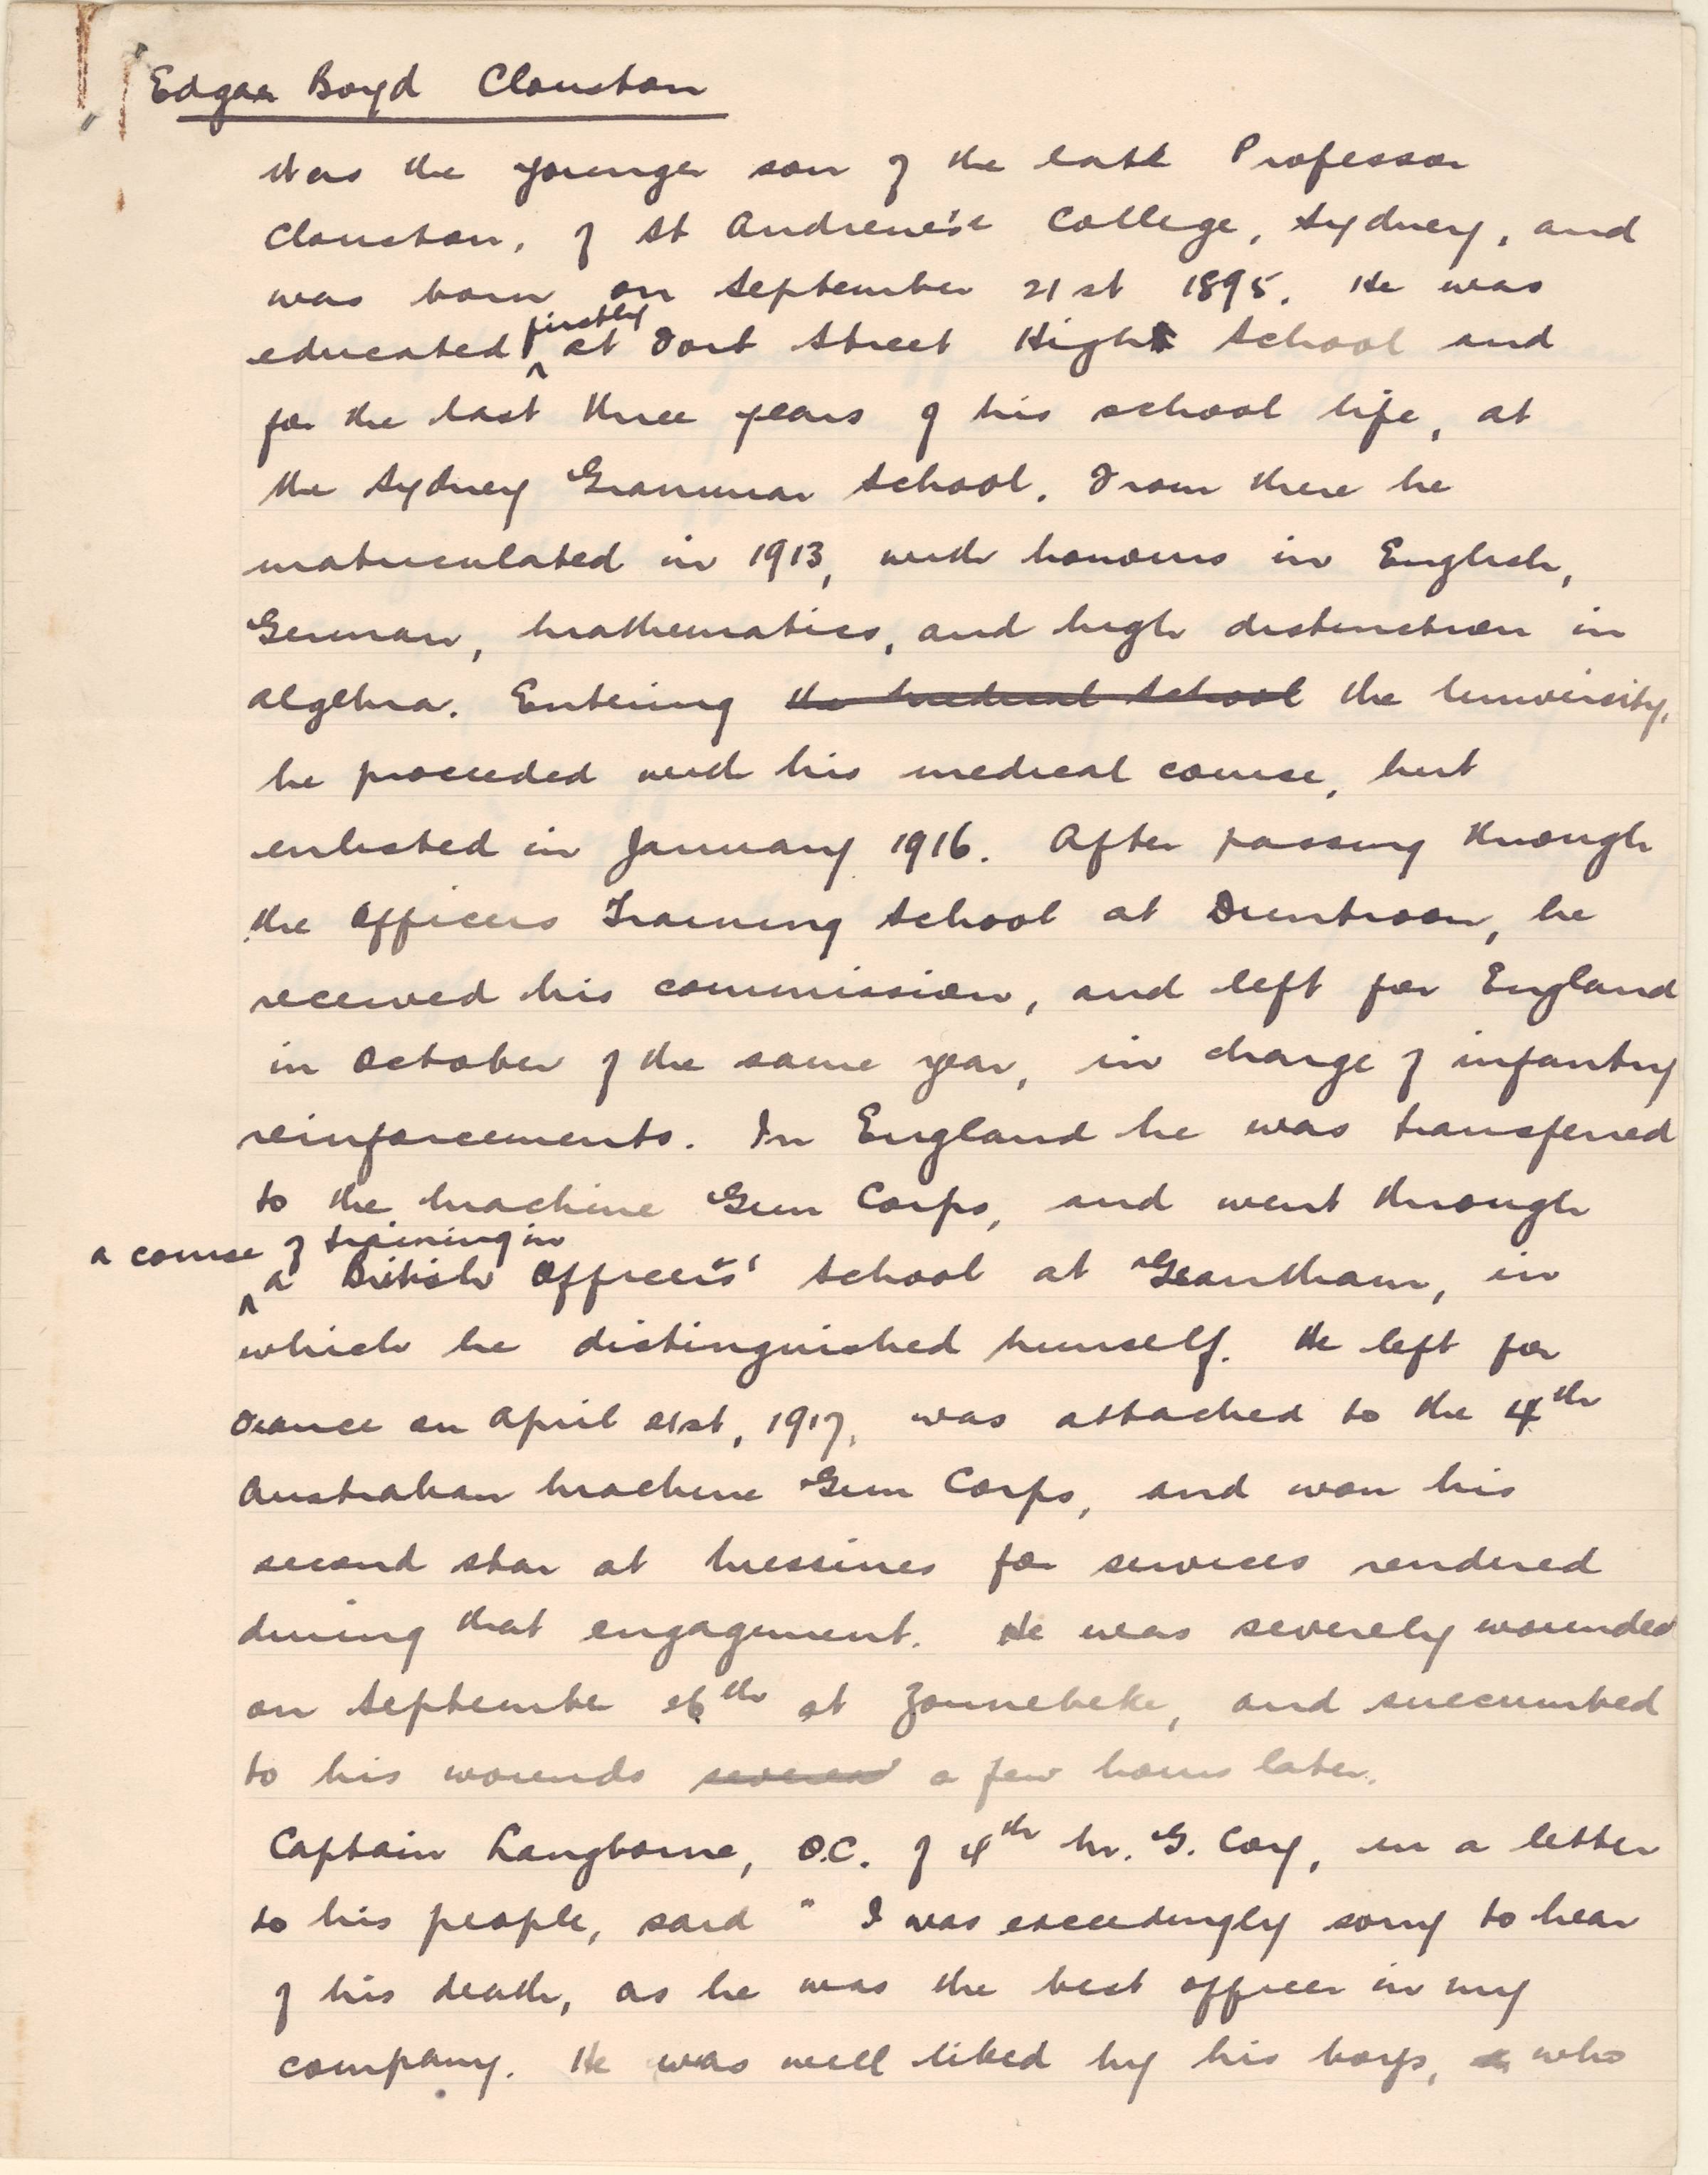 Edgar Boyd Clouston
Was the younger son of the late Professor
Clouston, of St Andrew's College, Sydney, and
was born on September 21st 1895. He was
firstly
educated at Fort Street High School and
for the last three years of his school life, at
the Sydney Grammar School. From there he
matriculated in 1913, with honours in English,
German, Mathematics, and high distinction in
algebra. Entering the Medical School the University,
he proceeded with his medical course, but
enlisted in January 1916. After passing through
the Officers Training School at Duntroon, he
received his commission, and left for England
in October of the same year, in charge of infantry
reinforcements. In England he was transferred
to the Machine Gun Corps, and went through
a course of training in
a British Officers' School at Grantham, in
which he distinguished himself. He left for
France on April 21st, 1917, was attached to the 4th
Australian Machine Gun Corps, and won his
second star at Messines for services rendered
during that engagement. He was severely wounded
on September 26th at Zonnebeke, and succumbed
to his wounds several a few hours later.
Captain Langborne, O.C. of 4th M. G. Coy, in a letter
to his people, said " I was exceedingly sorry to hear
of his death, as he was the best officer in my
company. He was well liked by his boys, who